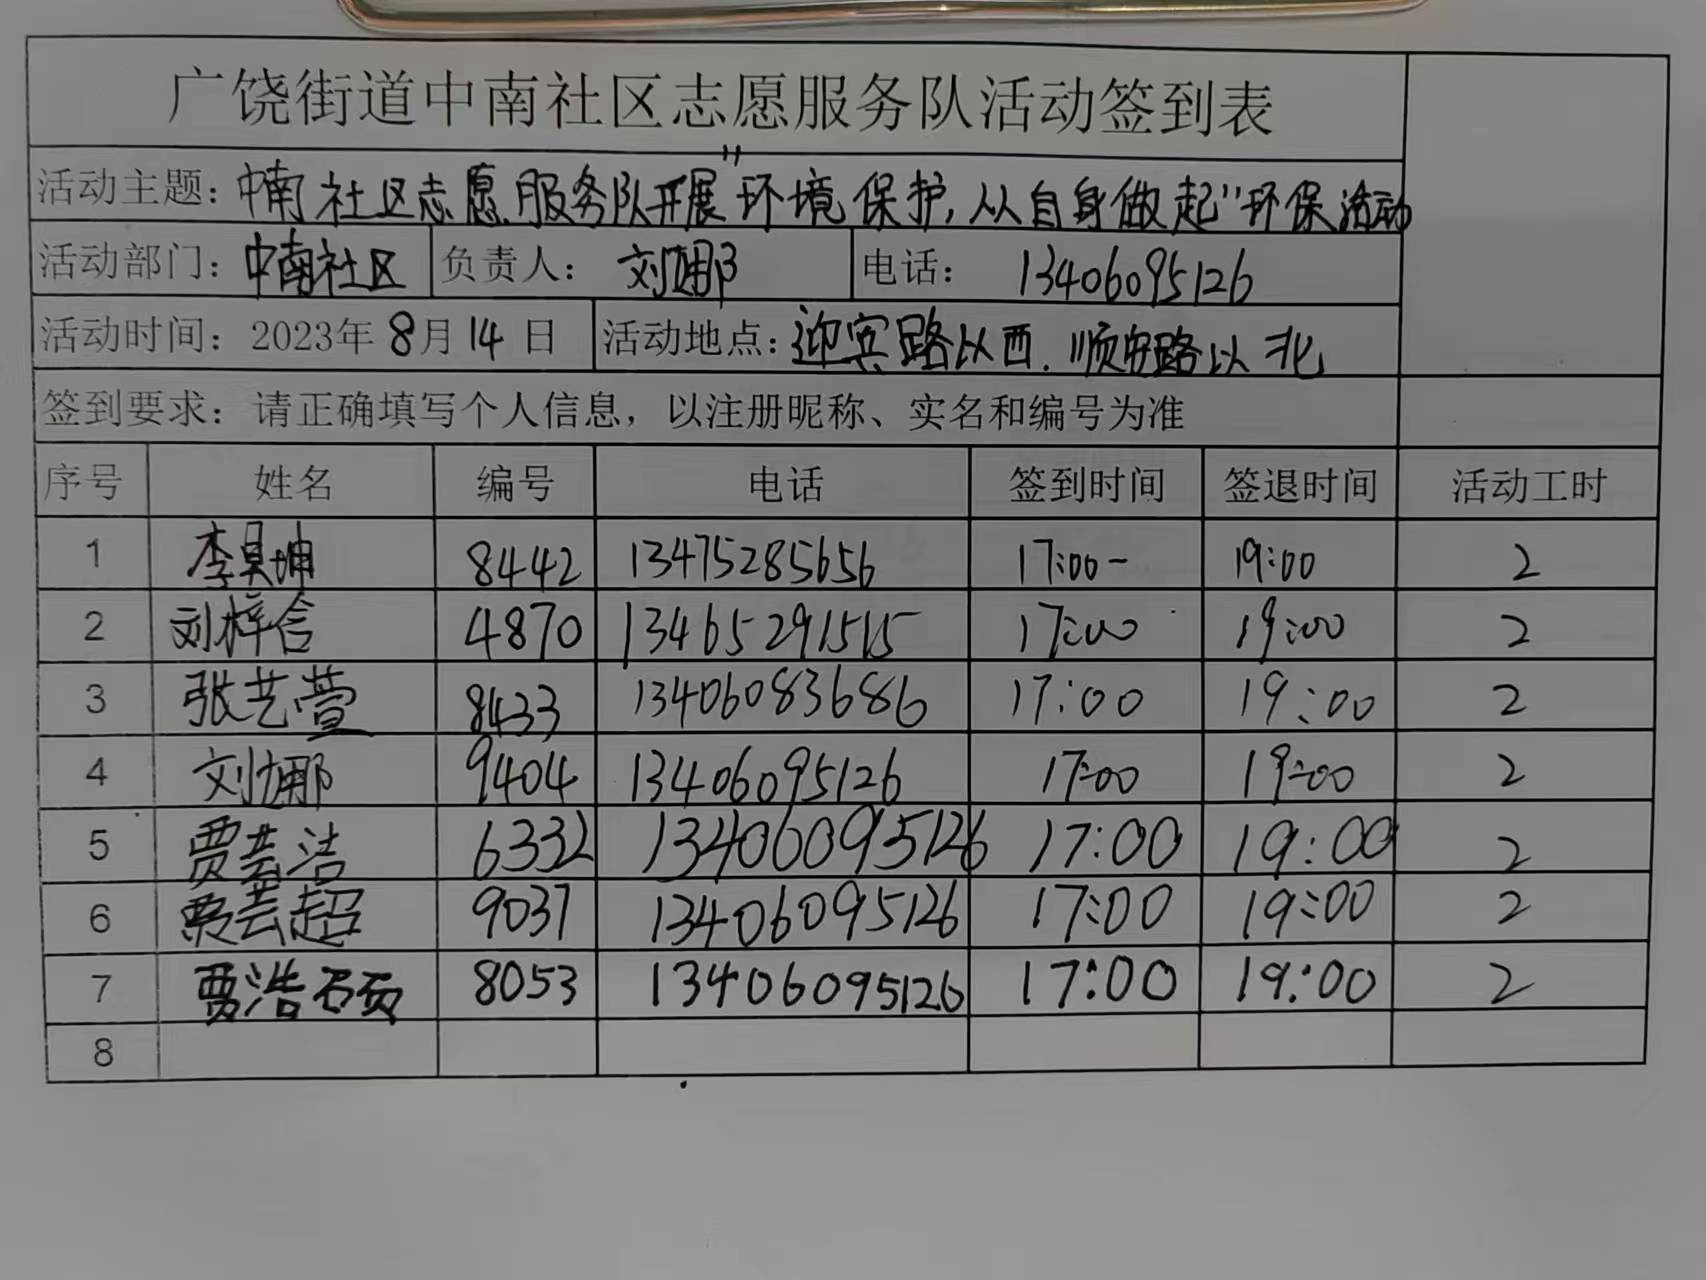 广饶街道中南社区志愿服务队活动签到表
活动主题：中南社区志愿服务队开展"环境保护,从自身做起"环保活动
活动部门：中南社区 负责人：刘娜 电话：13406095126
活动时间：2023年8月14日 活动地点：迎宾路以西、顺安路以北
签到要求：请正确填写个人信息，以注册昵称、实名和编号为准
序号 姓名 编号 电话 签到时间 签退时间 活动工时
1 李昊坤 8442 13475285656 17:00- 19:00 2
2 刘梓含 4870 13465291515 17:00 19:00 2
3 张艺萱 8433 13406083686 17:00 19:00 2
4 刘娜 9404 13406095126 17:00 19:00 2
5 贾芸洁 6332 13406095126 17:00 19:00 2
6 贾芸超 9037 13406095126 17:00 19:00 2
7 贾浩硕 8053 13406095126 17:00 19:00 2
8